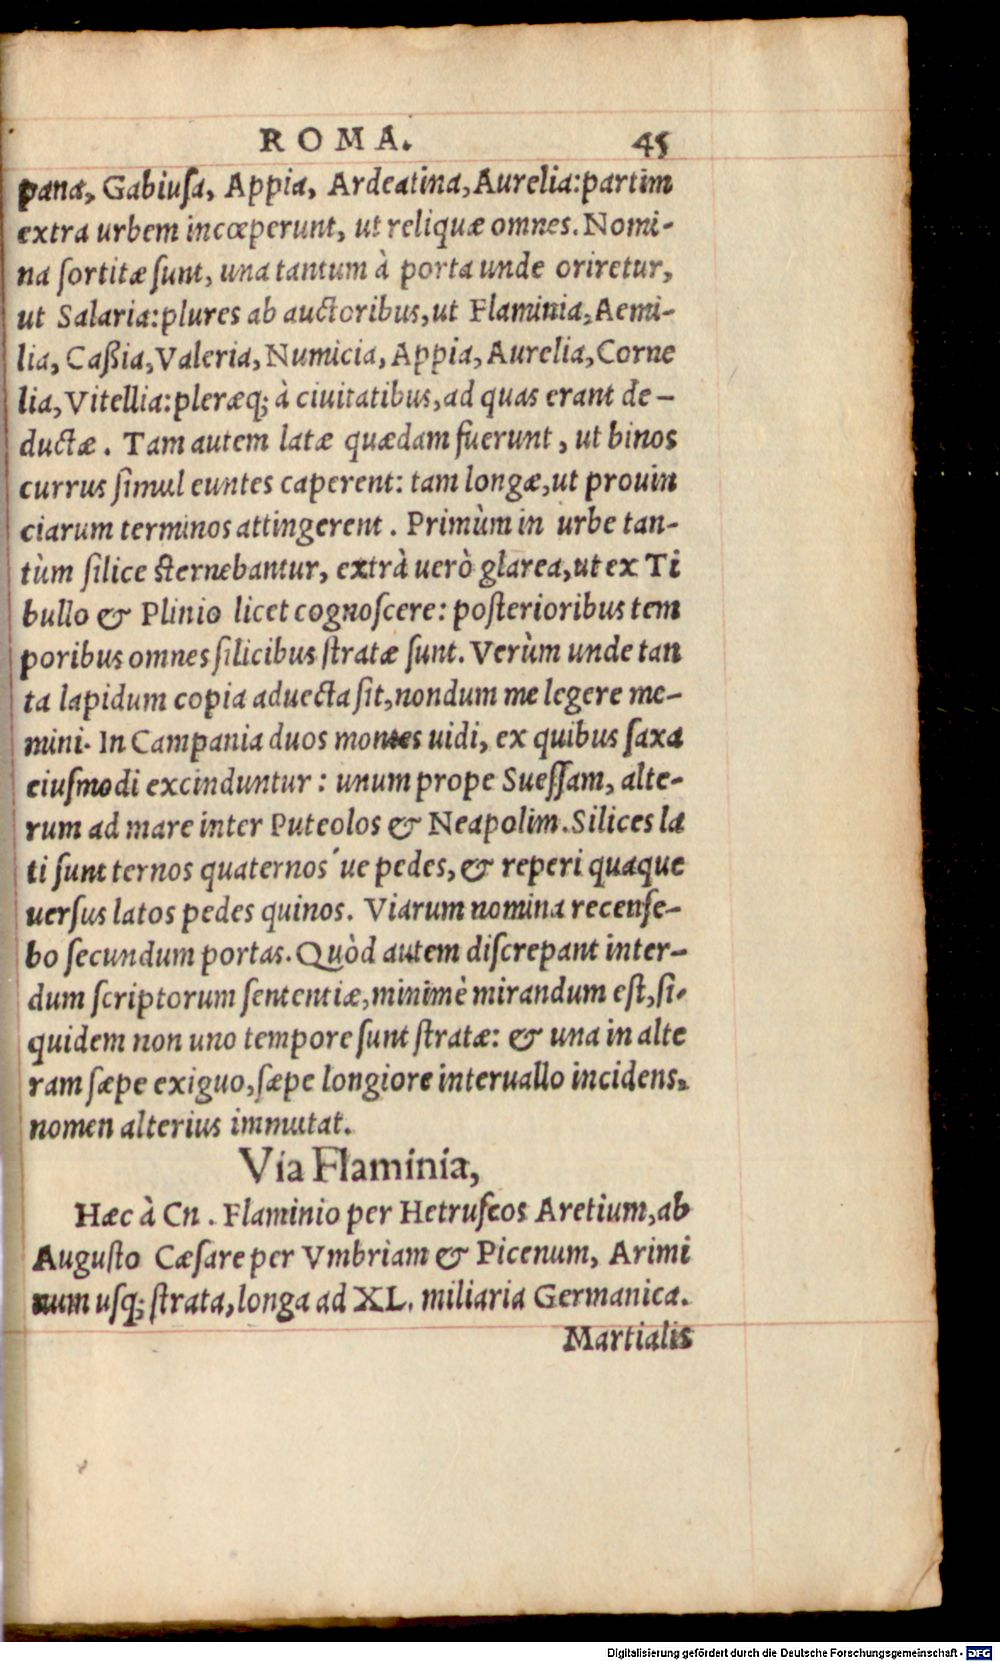 ROMA. 45
pana, Gabiuſa, Appia, Ardeatina, Aurelia: partim
extra urbem incœperunt, ut reliquæ omnes. Nomi-
na ſortitæ ſunt, una tantum à porta unde oriretur,
ut Salaria: plures ab auctoribus, ut Flaminia, Aemi-
lia, Caßia, Valeria, Numicia, Appia, Aurelia, Corne
lia, Vitellia: pleræq; à ciuitatibus, ad quas erant de-
ductæ. Tam autem latæ quædam fuerunt, ut binos
currus ſimul euntes caperent: tam longæ, ut prouin
ciarum terminos attingerent. Primùm in urbe tan-
tùm ſilice sternebantur, extrà uerò glarea, ut ex Ti
bullo & Plinio licet cognoſcere: poſterioribus tem
poribus omnes ſilicibus ſtratæ ſunt. Verùm unde tan
ta lapidum copia aduecta ſit, nondum me legere me-
mini. In Campania duos montes uidi, ex quibus ſaxa
eiuſmodi excinduntur: unum prope Sueſſam, alte-
rum ad mare inter Puteolos & Neapolim. Silices la
ti ſunt ternos quaternos´ue pedes, & reperi quaque
uerſus latos pedes quinos. Viarum nomina recenſe-
bo ſecundum portas. Quòd autem diſcrepant inter-
dum ſcriptorum ſententiæ, minimè mirandum eſt, ſi-
quidem non uno tempore ſunt ſtratæ: & una in alte
ram ſæpe exiguo, ſæpe longiore interuallo incidens,
nomen alterius immutat.
Via Flaminia,
Hæc à Cn. Flaminio per Hetruſcos Aretium, ab
Auguſto Cæſare per Vmbriam & Picenum, Arimi
num uſq; ſtrata, longa ad XL. miliaria Germanica.
Martialis
Digitalisierung gefördert durch die Deutsche Forschungsgemeinschaft - DFG